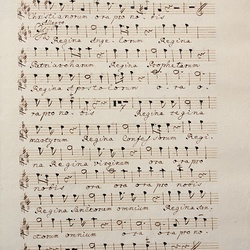 christianorum ora pro nobis
Allegro
Regina Angelorum Regina
Patriarcharum Regina Prophetarum
Regina Apostolorum ora
ora pro nobis Regina regina
martyrum Regina Confessorum Regi-
na Regina virginum ora ora pro
nobis ora ora pro nobis
Regina Sanctorum omnium Regina San-
ctorum omnium ora ora pro